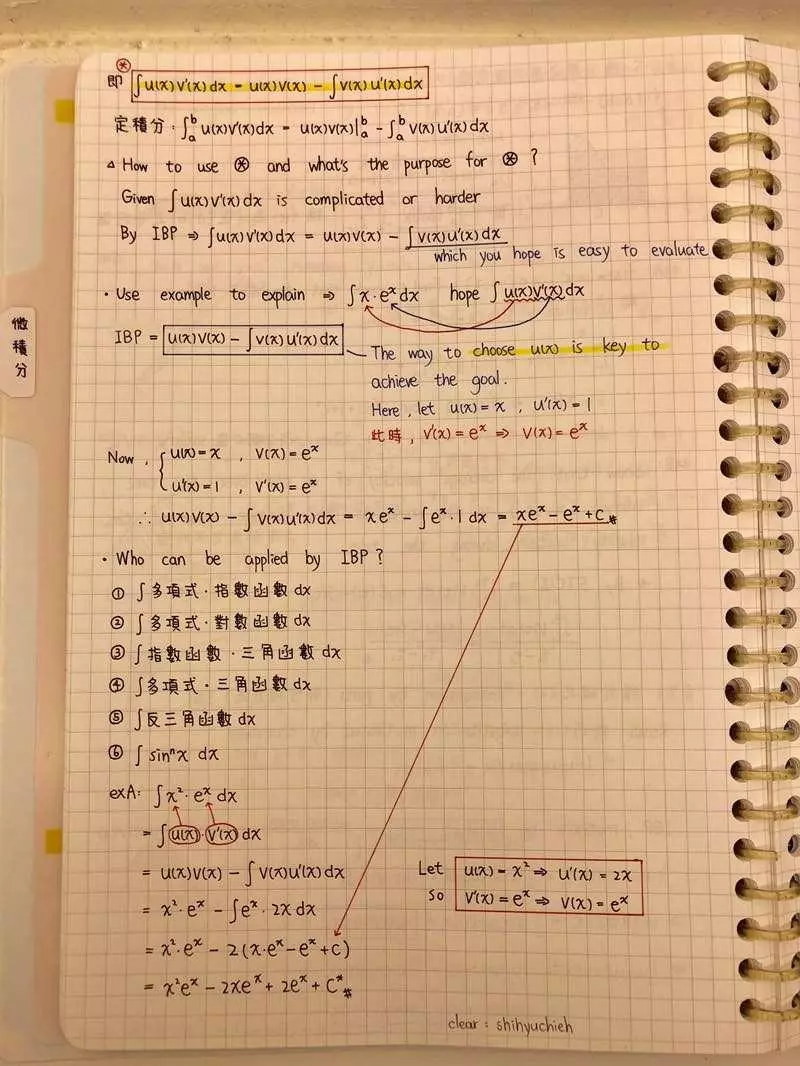 ⊛
即 ∫u(x)v'(x)dx = u(x)v(x) - ∫v(x)u'(x)dx
定積分: ∫ₐᵇ u(x)v'(x)dx = u(x)v(x)|ₐᵇ - ∫ₐᵇ v(x)u'(x)dx
△ How to use ⊛ and what's the purpose for ⊛ ?
Given ∫u(x)v'(x)dx is complicated or harder
By IBP ⇒ ∫u(x)v'(x)dx = u(x)v(x) - ∫v(x)u'(x)dx
which you hope is easy to evaluate
· Use example to explain ⇒ ∫x·eˣdx hope ∫u(x)v'(x)dx
IBP = u(x)v(x) - ∫v(x)u'(x)dx
The way to choose u(x) is key to
achieve the goal.
Here, let u(x) = x , u'(x) = 1
此時, v'(x) = eˣ ⇒ v(x) = eˣ
Now, { u(x) = x , v(x) = eˣ
u'(x) = 1 , v'(x) = eˣ
∴ u(x)v(x) - ∫v(x)u'(x)dx = xeˣ - ∫eˣ·1 dx = xeˣ - eˣ + C #
· Who can be applied by IBP ?
① ∫多項式·指數函數 dx
② ∫多項式·對數函數 dx
③ ∫指數函數·三角函數 dx
④ ∫多項式·三角函數 dx
⑤ ∫反三角函數 dx
⑥ ∫sinⁿx dx
exA: ∫x²·eˣ dx
= ∫u(x)·v'(x) dx
= u(x)v(x) - ∫v(x)u'(x)dx
= x²·eˣ - ∫eˣ·2x dx
= x²·eˣ - 2(x·eˣ - eˣ + C)
= x²eˣ - 2xeˣ + 2eˣ + C* #
Let u(x) = x² ⇒ u'(x) = 2x
So v'(x) = eˣ ⇒ v(x) = eˣ
clear : shihyuchieh
微積分